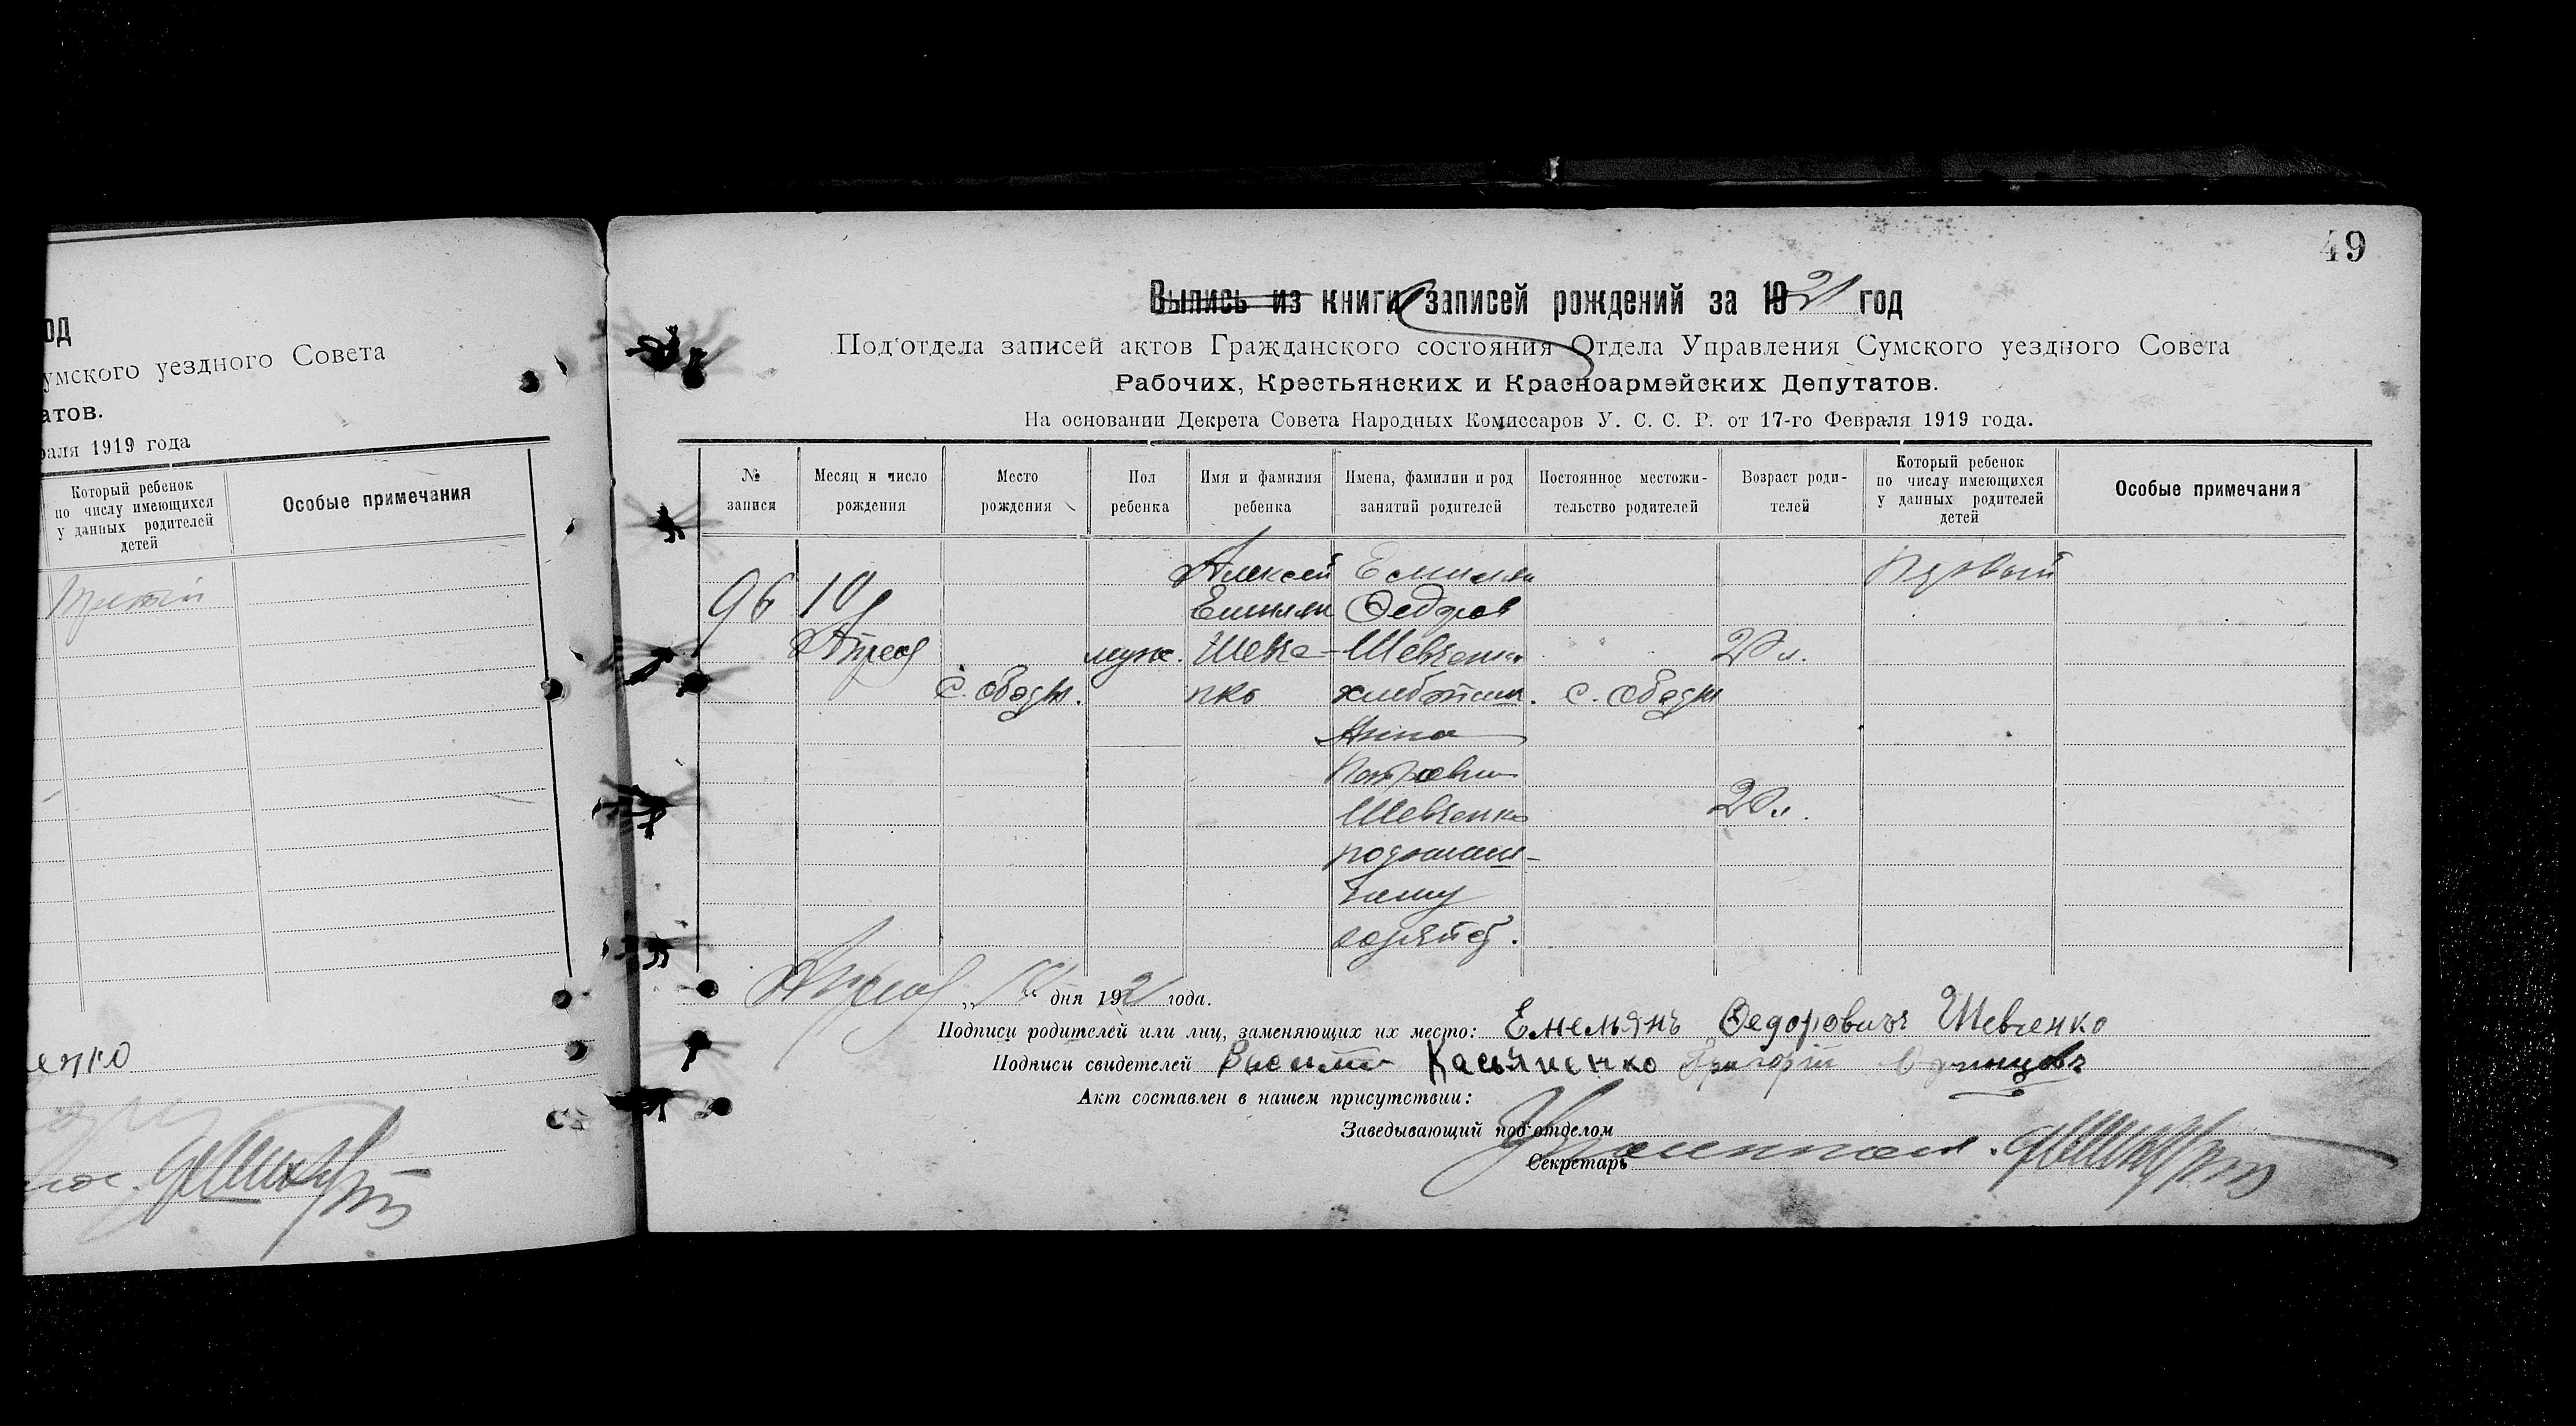 од
умского уездного Совета
атов.
раля 1919 года
Который ребенок
по числу имеющихся
у данных родителей
детей
Особые примечания
Третий
енко
49
Выпись из книги записей рождений за 1921 год
Под'отдела записей актов Гражданского состояния Отдела Управления Сумского уездного Совета
Рабочих, Крестьянских и Красноармейских Депутатов.
На основании Декрета Совета Народных Комиссаров У. С. С. Р. от 17-го Февраля 1919 года.
№
записи
Месяц и число
рождения
Место
рождения
Пол
ребенка
Имя и фамилия
ребенка
Имена, фамилии и род
занятий родителей
Постоянное местожи-
тельство родителей
Возраст роди-
телей
Который ребенок
по числу имеющихся
у данных родителей
детей
Особые примечания
96
10
Апреля
с. Ободы.
муж.
Алексей
Емильян
Шевче-
нко
Емильян
Федоров
Шевченко
хлебопаш.
Анна
Петровна
Шевченко
с. Ободы
20 л.
20 л.
Первый
Апреля „ “ дня 1921 года.
Подписи родителей или лиц, заменяющих их место: Емельянъ Федоровичъ Шевченко
Подписи свидетелей Касьяненко Григорій Одинцовъ
Акт составлен в нашем присутствии:
Заведывающий под'отделом
Секретарь